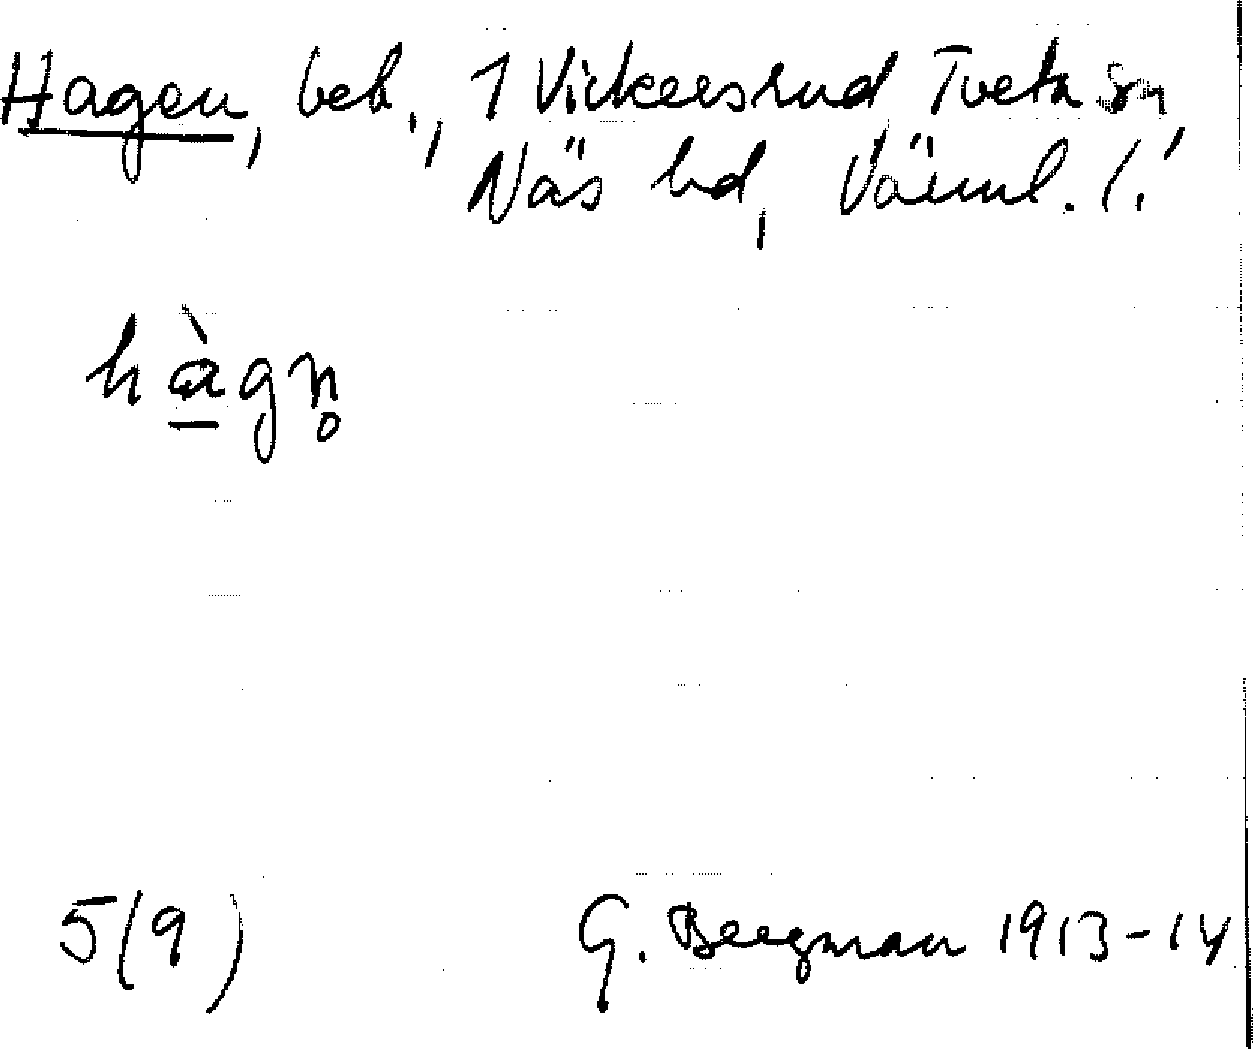 Hagen, beb., 1 Vickersrud Tveta sn,
Näs hd, Värml. l.
hàgn̥
5(9) G. Bergman 1913-14